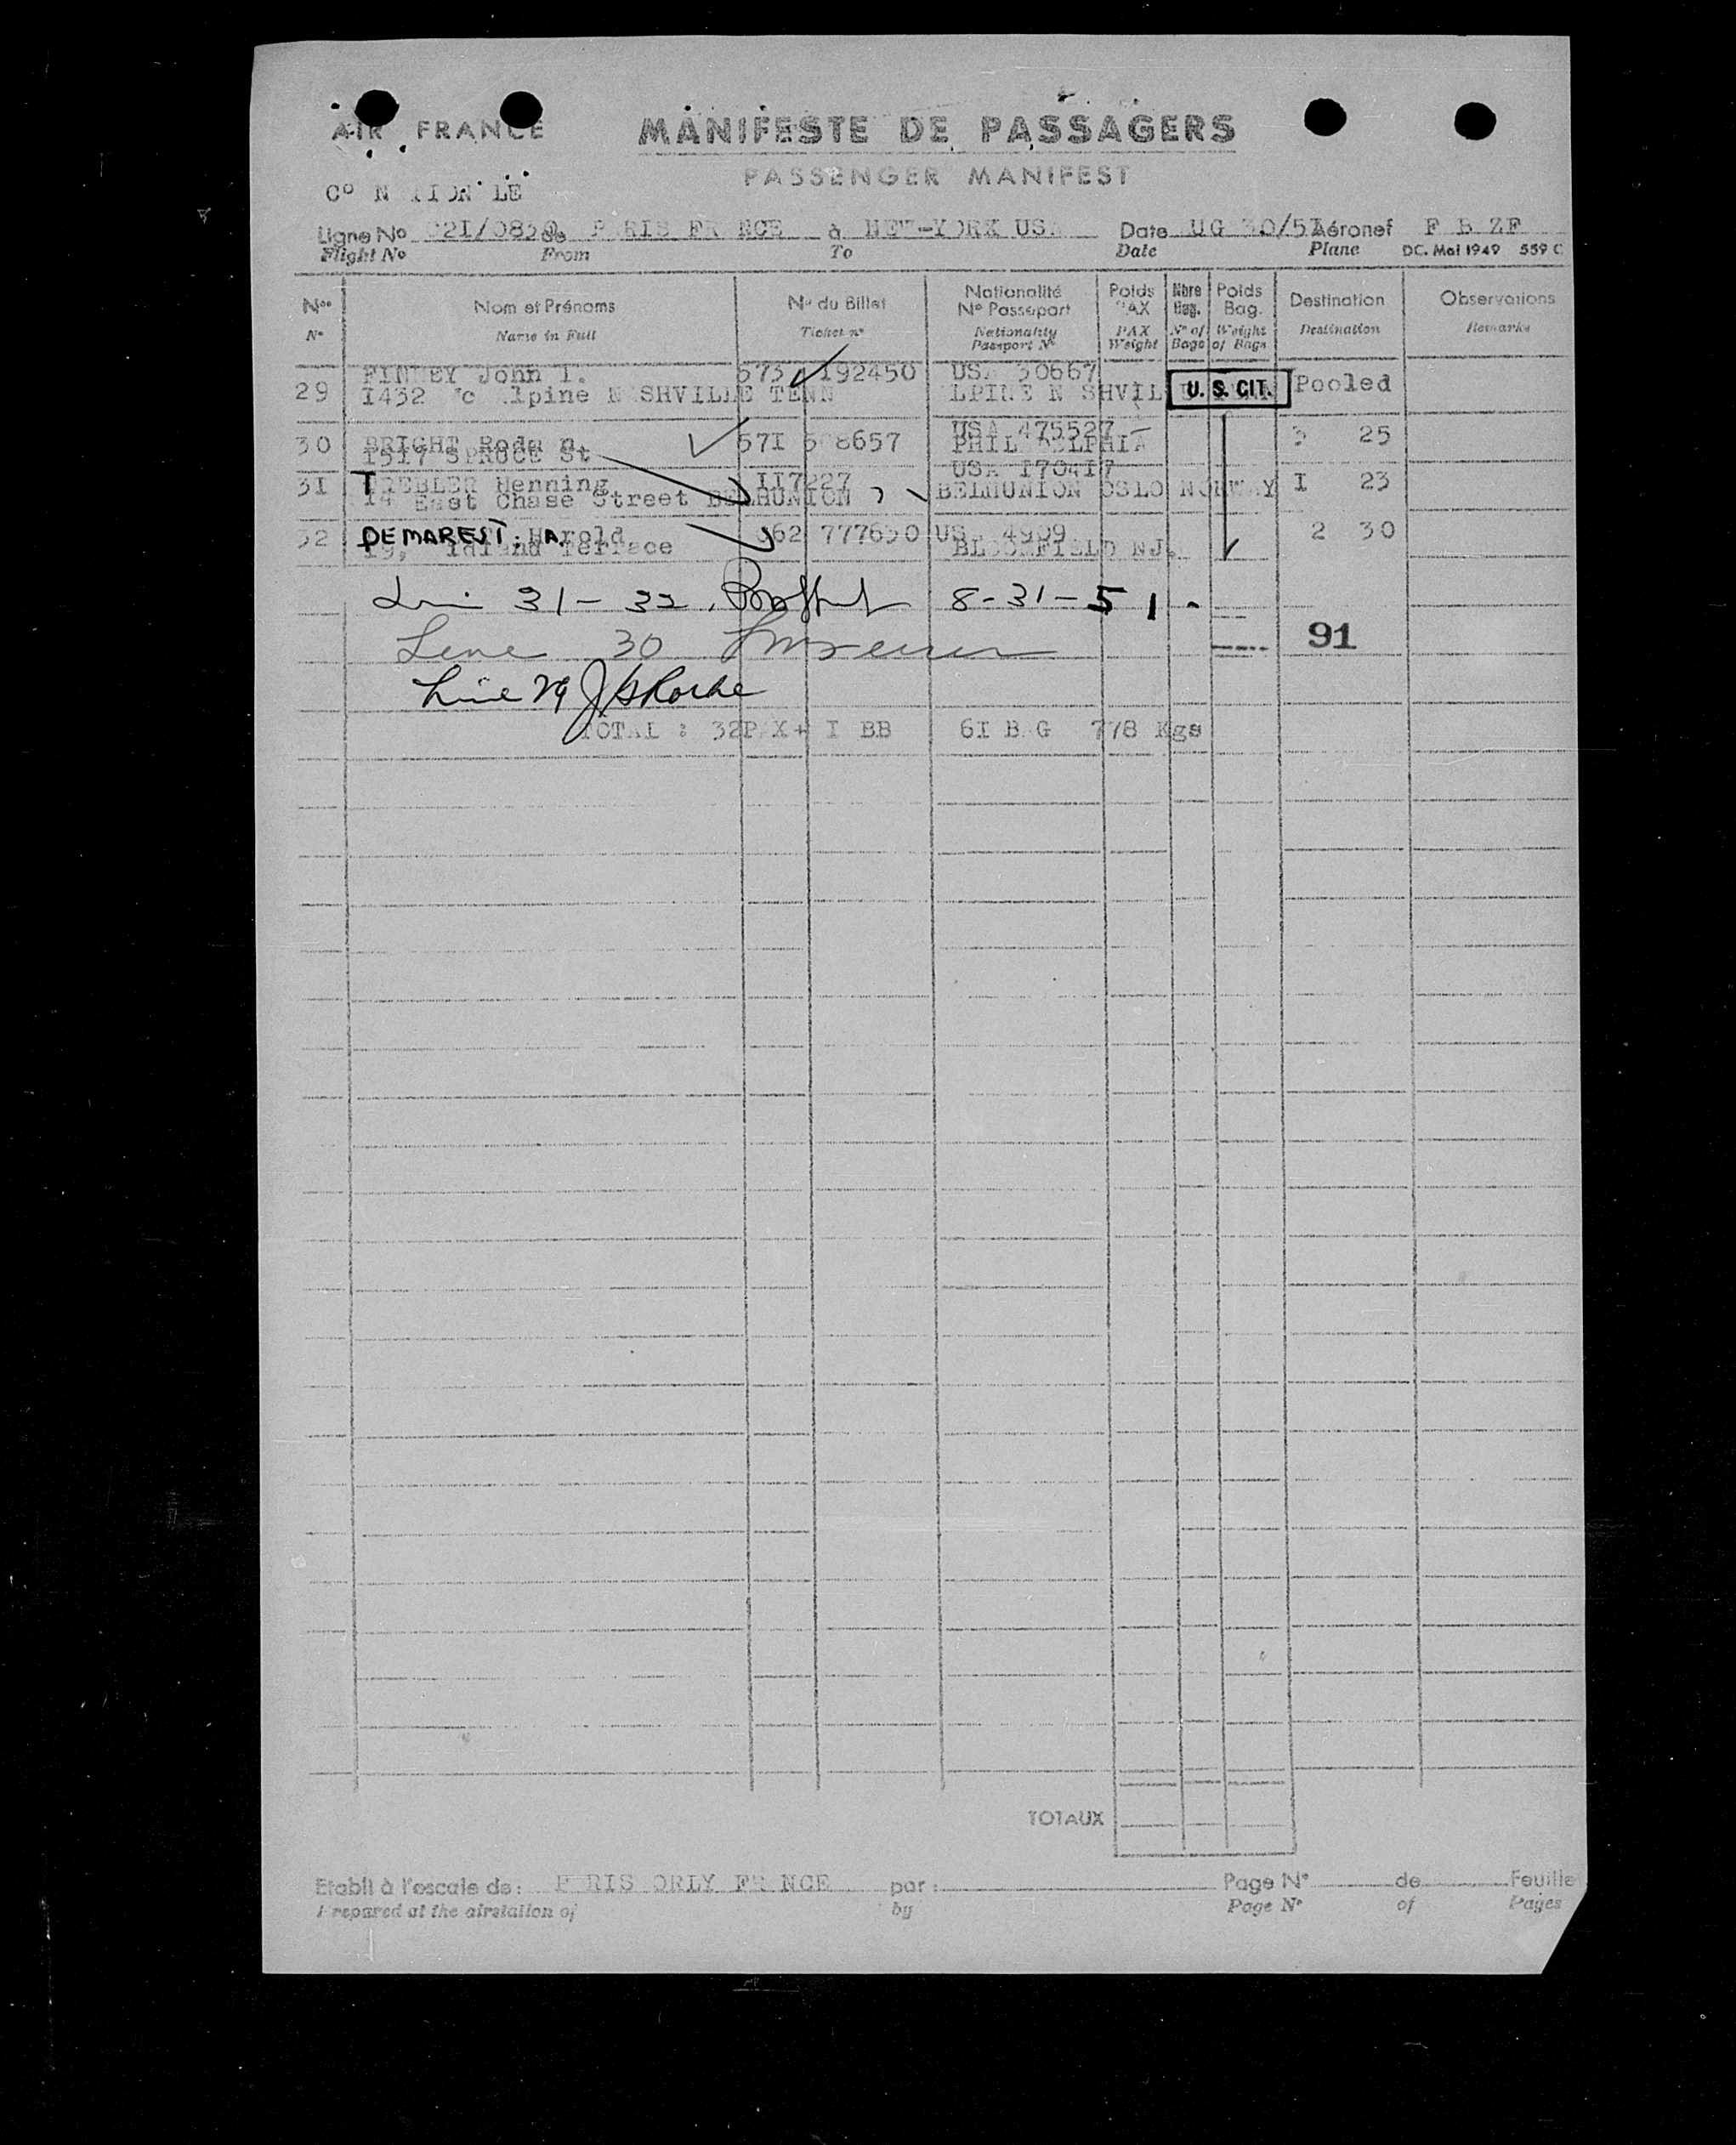 AIR FRANCE MANIFESTE DE PASSAGERS
PASSENGER MANIFEST
Co N TION LE
Ligne No 21/0830 de P RIS FR NCE à NEW-YORK US Date UG 30/5I Aéronef F B ZF
Flight No From To Date Plane DC. Mai 1949 559 C
Nos Nom et Prénoms No du Billet Nationalité No Passeport Poids PAX Nbre Bag. Poids Bag. Destination Observations
No Name in Full Ticket no Nationality Passport No PAX Weight No of Bags Weight of Bags Destination Remarks
29 FINNEY John T. 573 192450 USA 30667
1432 c lpine N SHVILLE TENN LPINE N SHVIL U. S. CIT. Pooled
30 BRIGHT 57I 508657 USA 475527 3 25
1517 SPRUCE St PHIL DELPHIA
31 TREBLER Henning II7227 USA 170417 I 23
14 East Chase Street BELMUNION BELMUNION OSLO NORWAY
32 DEMAREST. HA. Harold 62 777650 US 4909 2 30
19, idland Terrace BLOOMFIELD NJ.
31-32 8-31-51.
Line 30 91
Line 29
TOTAL : 32P X+ I BB 6I B G 778 Kgs
TOTAUX
Etabli à l'escale de: P RIS ORLY FR NCE par: Page No de Feuille
Prepared at the airstation of by Page No of Pages